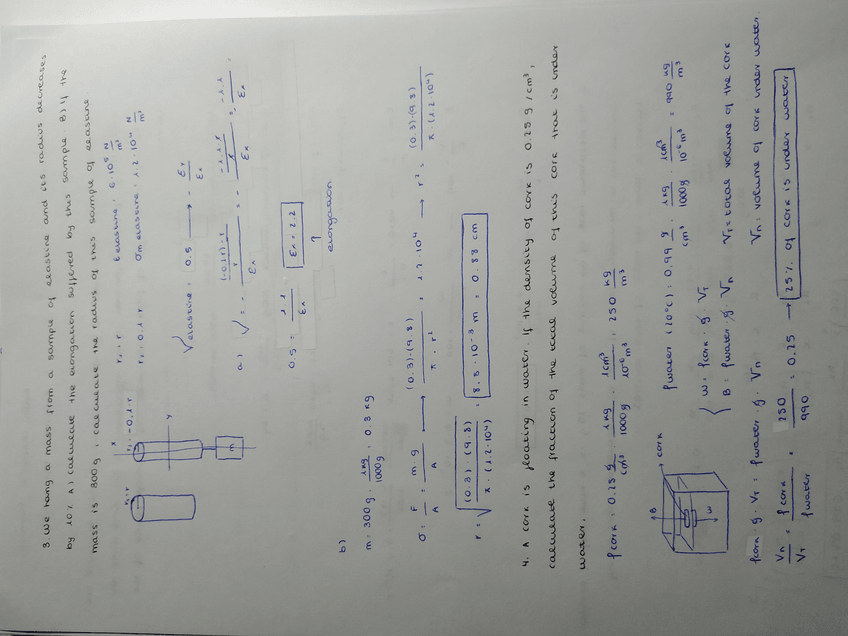 3. We hang a mass from a sample of elastine and its radius decreases
by 10%. A) Calculate the elongation suffered by this sample. B) If the
mass is 300g, calculate the radius of this sample of elastine.
r₀ = r
r₁ = -0.1·r
x
y
m
r₀ = r
r₁ = 0.1·r
E elastine = 6·10⁵ N/m²
σm elastine = 1.2·10⁴ N/m²
√ elastine = 0.5 → - Er/Ex
a) √ = - ((-0.1r)-r)/r / Ex = - (-1.1·r/r)/Ex = - -1.1/Ex ;
0.5 = 1.1/Ex
Ex = 2.2
↑
elongation
b)
m = 300g · 1kg/1000g = 0.3 kg
σ = F/A = m g/A → (0.3)·(9.8)/π·r² = 1.2·10⁴ → r² = (0.3)·(9.8)/π·(1.2·10⁴)
r = √((0.3)·(9.8)/π·(1.2·10⁴)) = 8.8·10⁻³ m = 0.88 cm
4. A cork is floating in water. If the density of cork is 0.25 g/cm³,
calculate the fraction of the total volume of this cork that is under
water.
ρcork = 0.25 g/cm³ · 1kg/1000g · 1cm³/10⁻⁶m³ = 250 kg/m³
cork
B
w
ρwater (20°C) = 0.99 g/cm³ · 1kg/1000g · 1cm³/10⁻⁶m³ = 990 kg/m³
{ w = ρcork · g · VT
B = ρwater · g · Vn
VT = total volume of the cork
Vn = volume of cork under water.
ρcork · g · VT = ρwater · g · Vn
Vn/VT = ρcork/ρwater = 250/990 = 0.25 → 25% of cork is under water